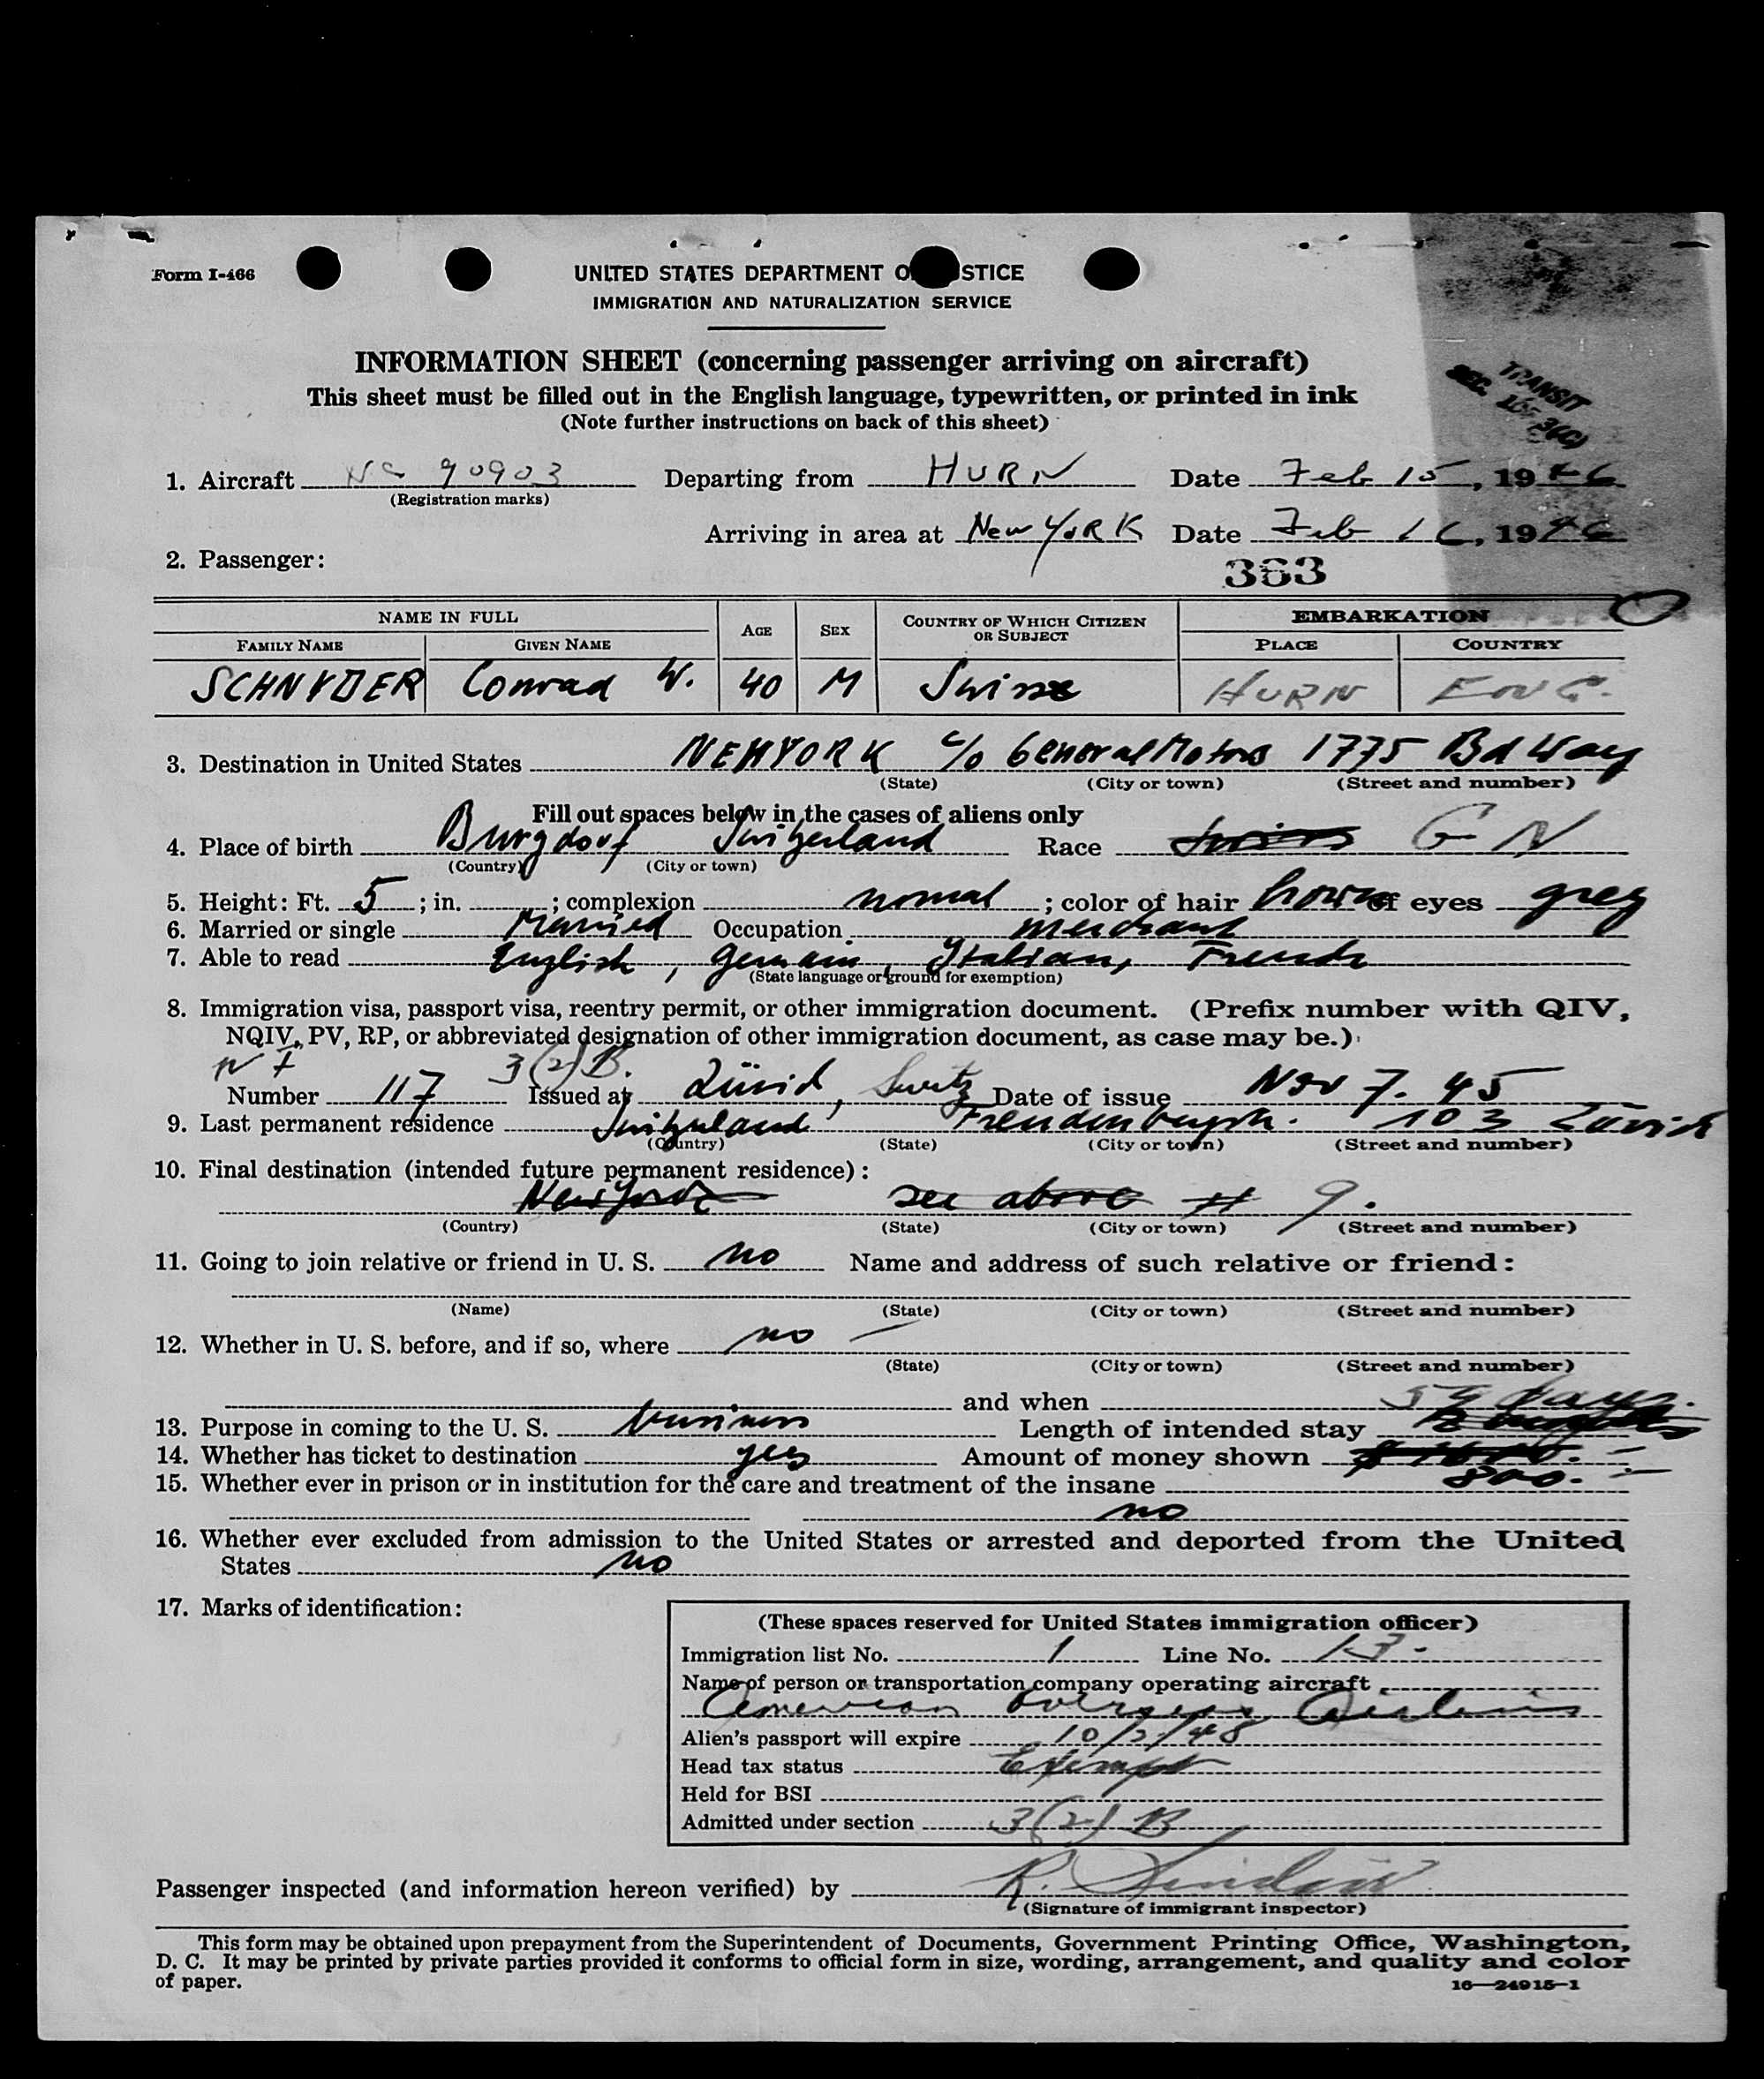 Form I-466
UNITED STATES DEPARTMENT O STICE
IMMIGRATION AND NATURALIZATION SERVICE
INFORMATION SHEET (concerning passenger arriving on aircraft)
This sheet must be filled out in the English language, typewritten, or printed in ink
(Note further instructions on back of this sheet)
TRANSIT
SEC.
1. Aircraft NC 90903 Departing from HURN Date Feb 15, 1946
(Registration marks)
Arriving in area at New YORK Date Feb 16, 1946
2. Passenger: 363
NAME IN FULL AGE SEX COUNTRY OF WHICH CITIZEN OR SUBJECT EMBARKATION
FAMILY NAME GIVEN NAME PLACE COUNTRY
SCHNYDER Conrad W. 40 M Swiss HURN ENG.
3. Destination in United States NEWYORK c/o General Motors 1775 Bd Way
(State) (City or town) (Street and number)
Fill out spaces below in the cases of aliens only
4. Place of birth Burgdorf Switzerland Race Swiss G N
(Country) (City or town)
5. Height: Ft. 5 ; in. ; complexion normal ; color of hair brown of eyes grey
6. Married or single Married Occupation merchant
7. Able to read English, German, Italian, French
(State language or ground for exemption)
8. Immigration visa, passport visa, reentry permit, or other immigration document. (Prefix number with QIV,
NQIV, PV, RP, or abbreviated designation of other immigration document, as case may be.)
3(2)B.
Number 117 Issued at Zürich, Switz Date of issue Nov 7. 45
9. Last permanent residence Switzerland Freudenbergstr. 103 Zürich
(Country) (State) (City or town) (Street and number)
10. Final destination (intended future permanent residence):
New York see above # 9.
(Country) (State) (City or town) (Street and number)
11. Going to join relative or friend in U. S. no Name and address of such relative or friend:
(Name) (State) (City or town) (Street and number)
12. Whether in U. S. before, and if so, where no —
(State) (City or town) (Street and number)
and when
59 days.
13. Purpose in coming to the U. S. business Length of intended stay
14. Whether has ticket to destination yes Amount of money shown
800.-
15. Whether ever in prison or in institution for the care and treatment of the insane
no
16. Whether ever excluded from admission to the United States or arrested and deported from the United
States no
17. Marks of identification:
(These spaces reserved for United States immigration officer)
Immigration list No. 1 Line No. 13-
Name of person or transportation company operating aircraft
American Overseas Airlines
Alien's passport will expire 10/2/48
Head tax status Exempt
Held for BSI
Admitted under section 3(2) B
Passenger inspected (and information hereon verified) by R.
(Signature of immigrant inspector)
This form may be obtained upon prepayment from the Superintendent of Documents, Government Printing Office, Washington,
D. C. It may be printed by private parties provided it conforms to official form in size, wording, arrangement, and quality and color
of paper. 16—24915-1